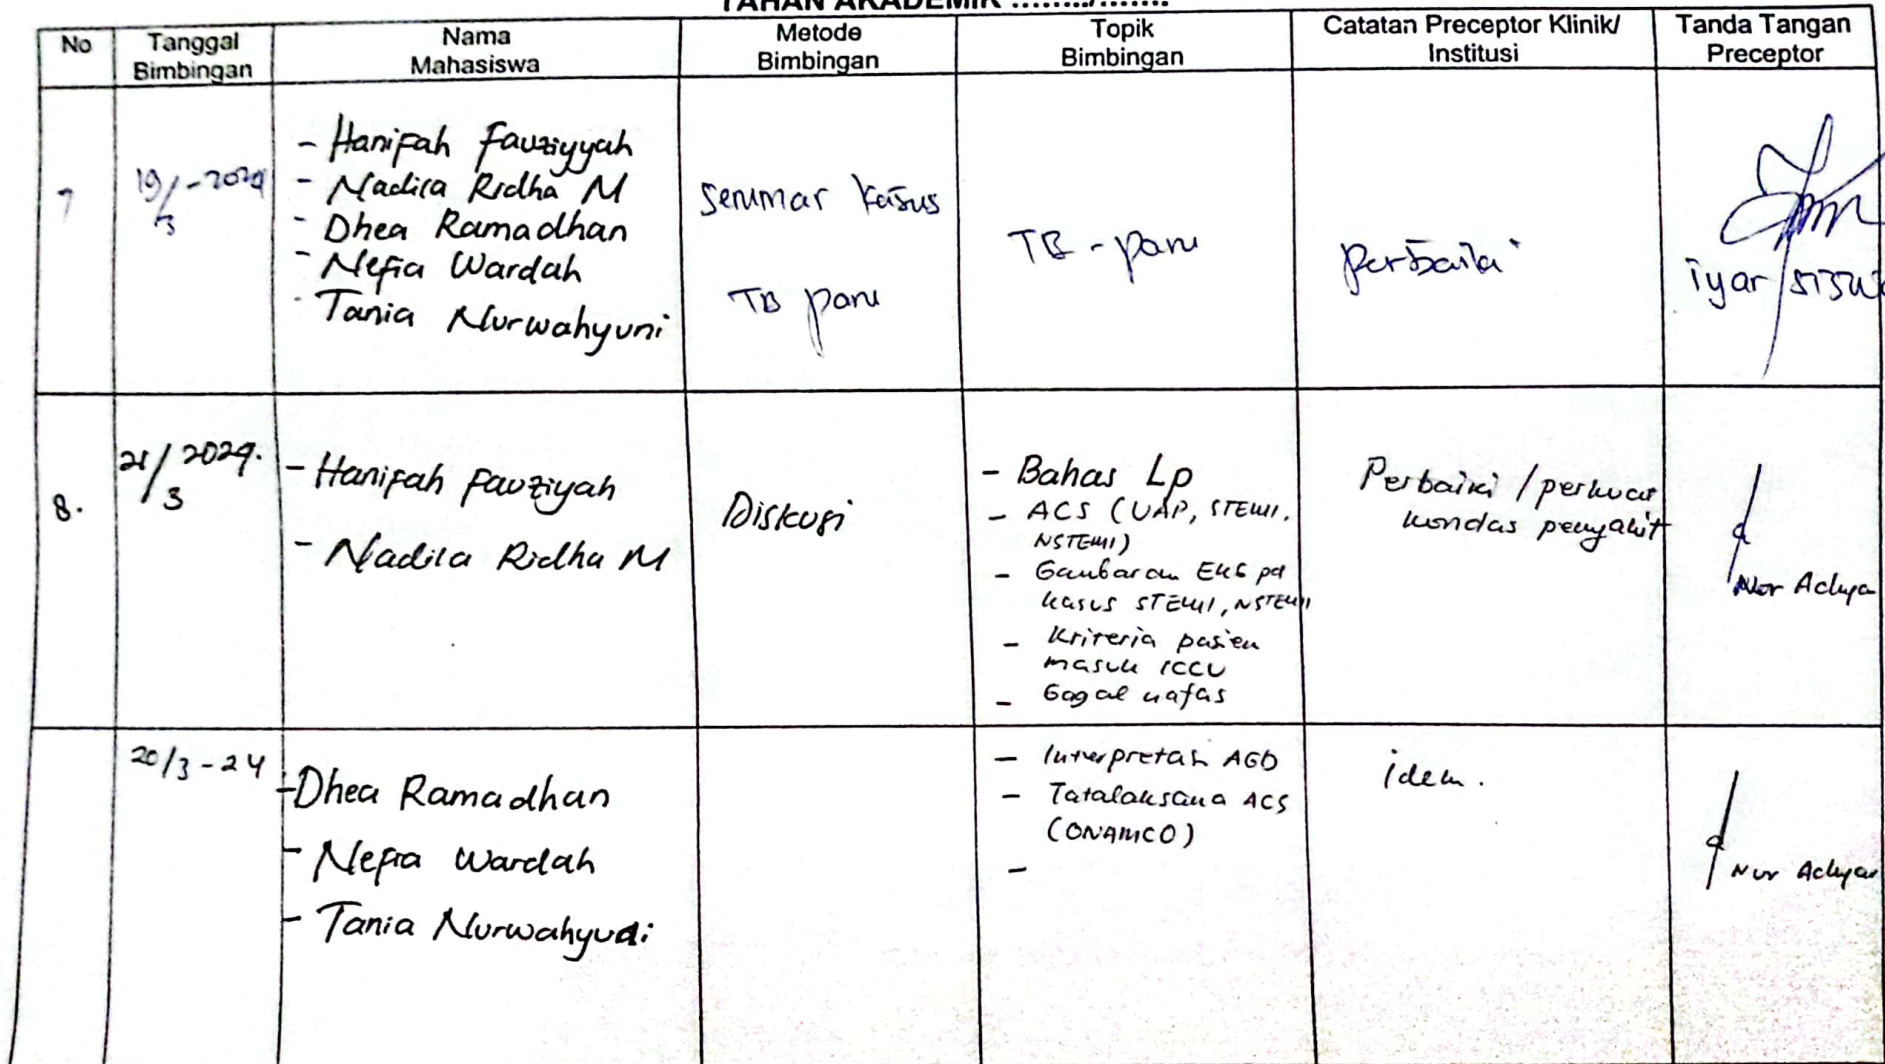 TAHAN AKADEMIK ......../.......
No
Tanggal
Bimbingan
Nama
Mahasiswa
Metode
Bimbingan
Topik
Bimbingan
Catatan Preceptor Klinik/
Institusi
Tanda Tangan
Preceptor
7
19/3-2024
- Hanifah Fauziyyah
- Nadila Ridha M
- Dhea Ramadhan
- Nefia Wardah
- Tania Nurwahyuni
Seminar Kasus
TB paru
TB - paru
perbaiki
iyar
8.
21/3 2024.
- Hanifah Fauziyah
- Nadila Ridha M
Diskusi
- Bahas Lp
- ACS (UAP, STEMI,
NSTEMI)
- Gambaran EKG pd
kasus STEMI, NSTEMI
- Kriteria pasien
masuk ICCU
- Gagal nafas
Perbaiki / perkuat
kondas penyakit
Nur Achya
20/3-24
- Dhea Ramadhan
- Nefia Wardah
- Tania Nurwahyudi
- Interpretasi AGD
- Tatalaksana ACS
(ONAMCO)
-
idem.
Nur Achyar